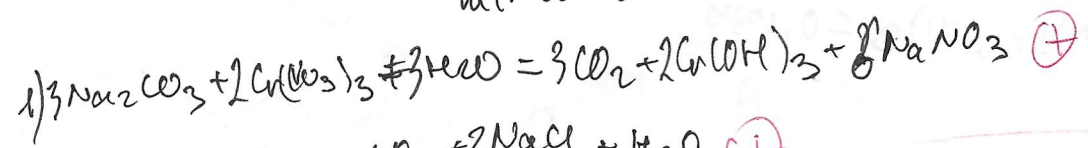 1) 3Na2CO3 + 2Cr(NO3)3 + 3H2O = 3CO2 + 2Cr(OH)3 + 6NaNO3 +
+2NaCl + H2O